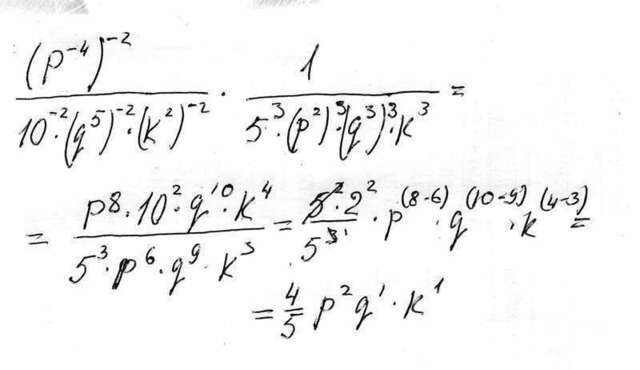 (p⁻⁴)⁻² / (10⁻²·(q⁵)⁻²·(k²)⁻²) · 1 / (5³·(p²)³·(q³)³·k³) =
= (p⁸·10²·q¹⁰·k⁴) / (5³·p⁶·q⁹·k³) = (5²·2²) / 5³ ¹ · p⁽⁸⁻⁶⁾ · q⁽¹⁰⁻⁹⁾ · k⁽⁴⁻³⁾ =
= 4/5 p² q¹ · k¹